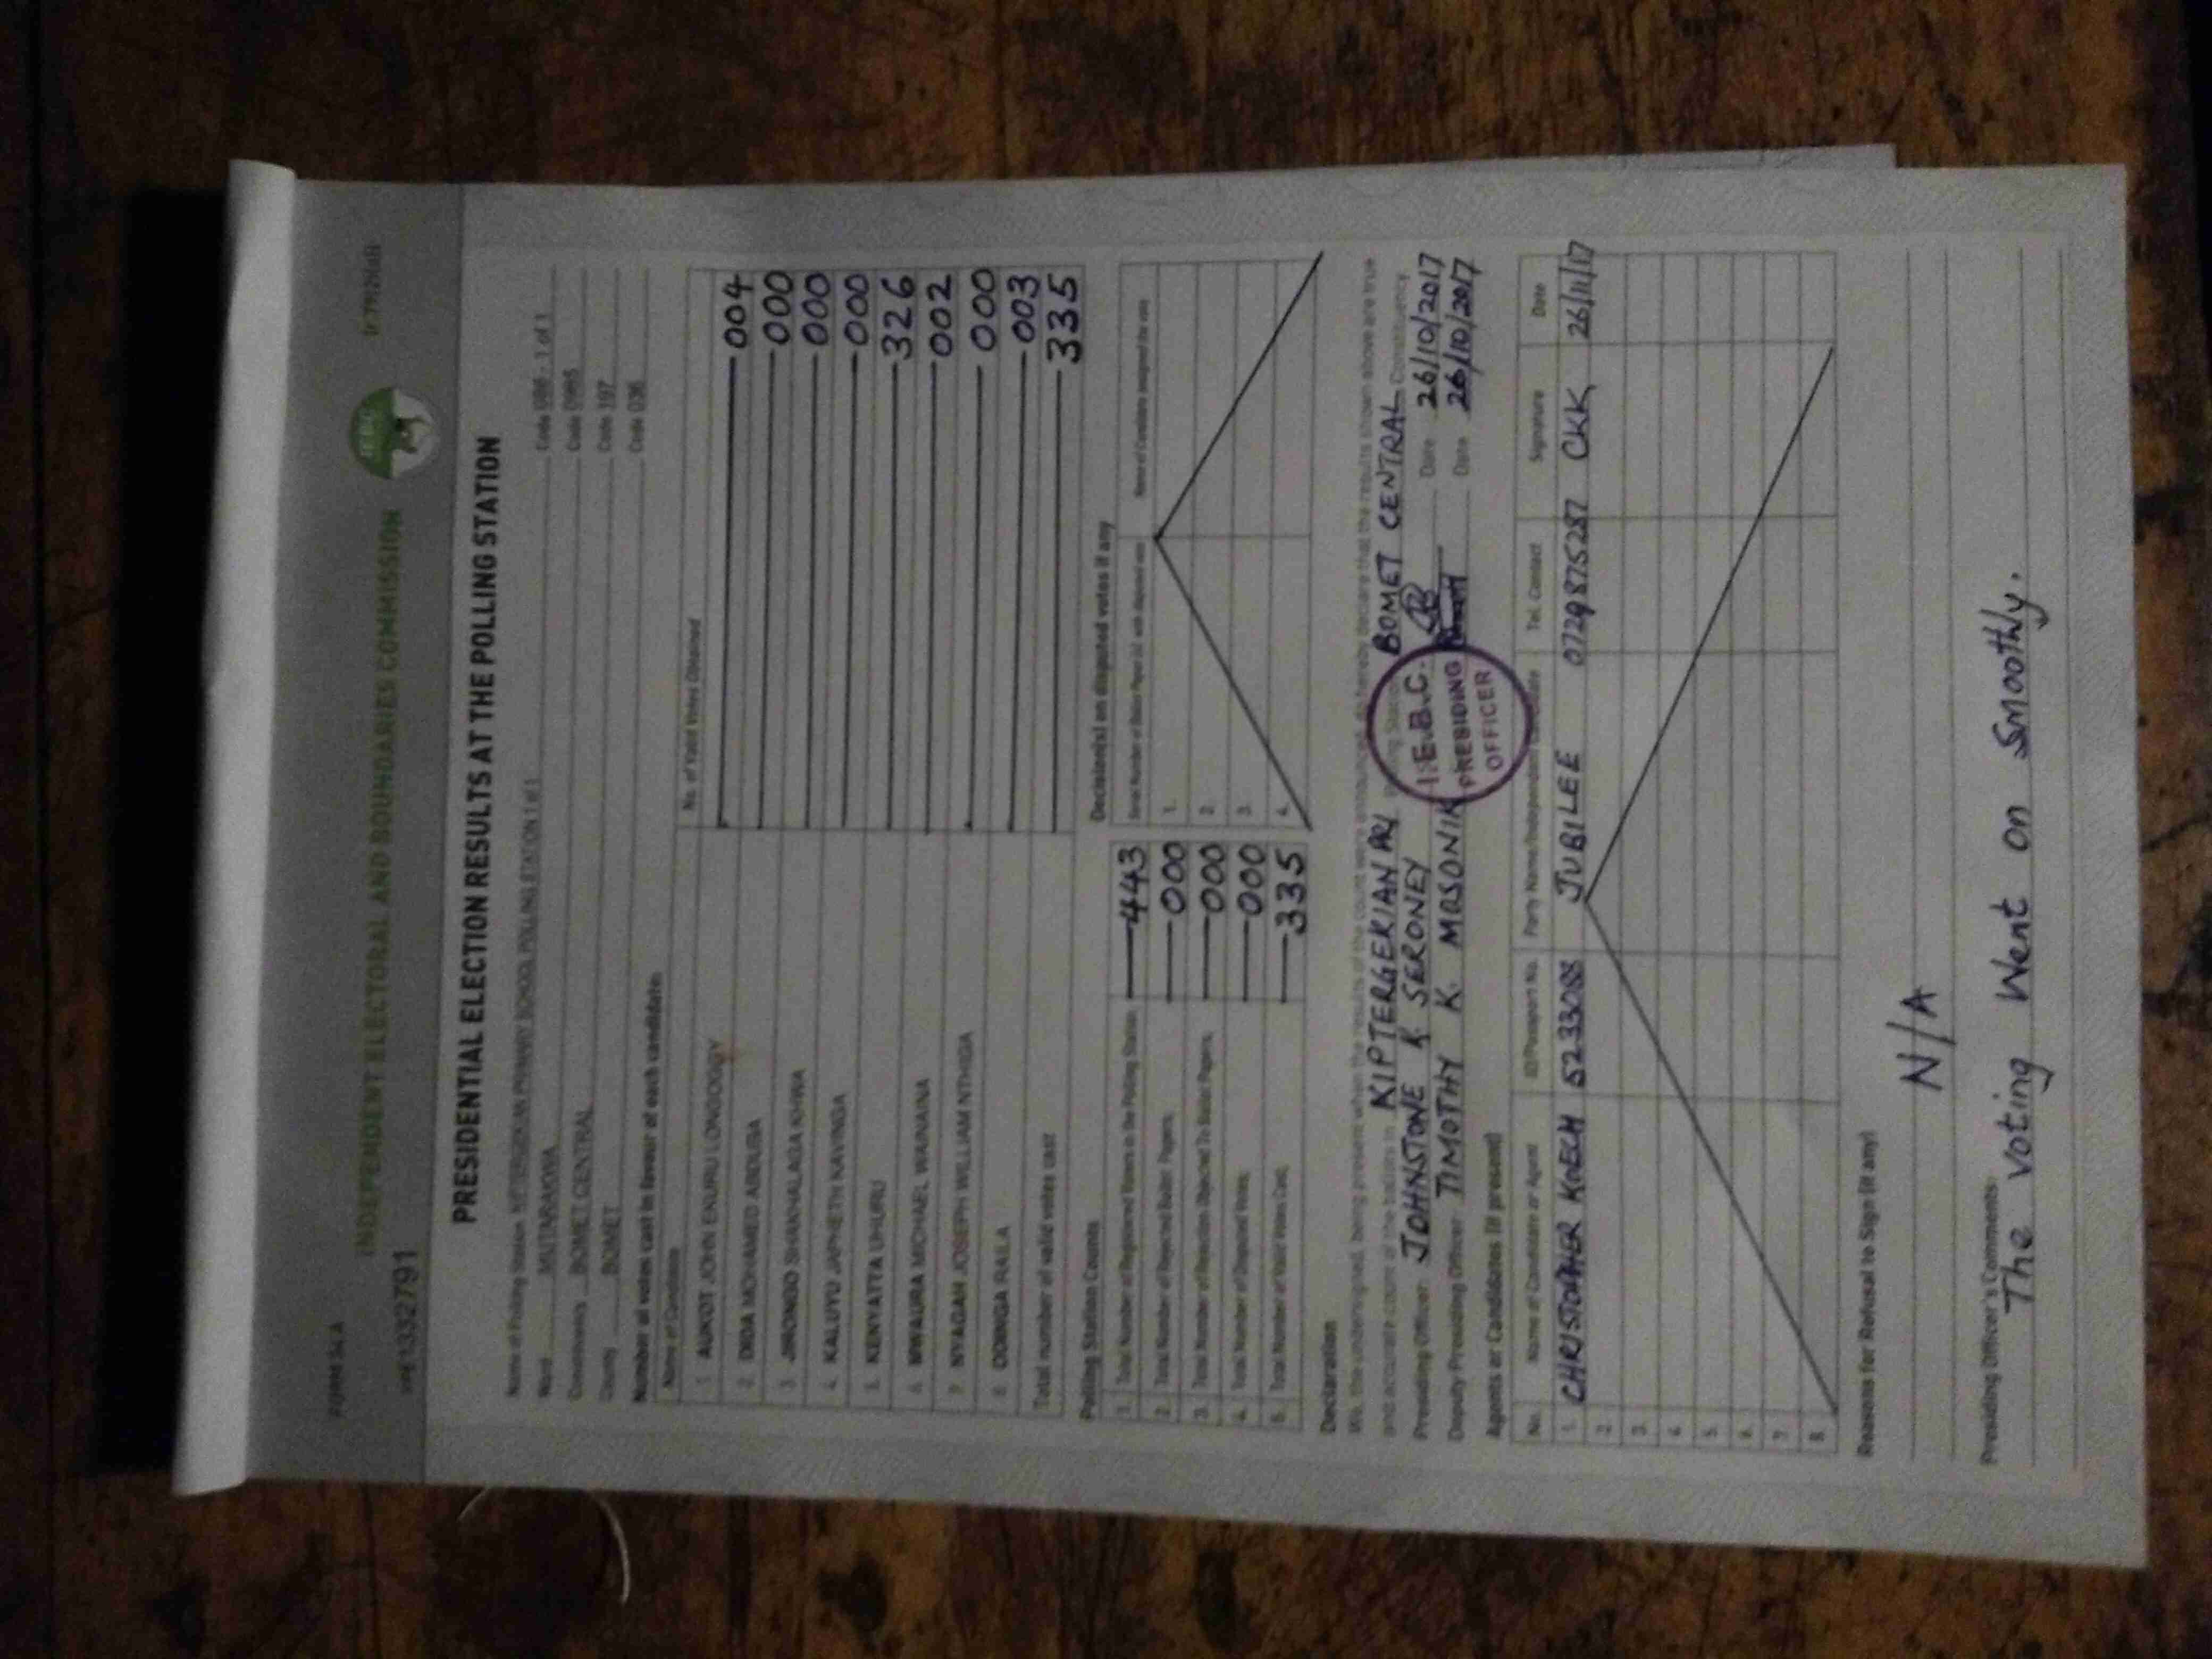 FORM 34 A
INDEPENDENT ELECTORAL AND BOUNDARIES COMMISSION
PRESIDENTIAL ELECTION RESULTS AT THE POLLING STATION
Name of Polling Station KIPTERGEKIAN PRIMARY SCHOOL POLLING STATION 1 of 1 Code 086 - 1 of 1
Ward MUTARAKWA Code 0985
Constituency BOMET CENTRAL Code 197
County BOMET Code 036
Number of votes cast in favour of each candidate:
Name of Candidate No. of Valid Votes Obtained
1. AUKOT JOHN EKURU LONGOGGY 004
2. DIDA MOHAMED ABDUBA 000
3. JIRONGO SHAKHALAGA KHWA 000
4. KALUYU JAPHETH KAVINGA 000
5. KENYATTA UHURU 326
6. MWAURA MICHAEL WAINAINA 002
7. NYAGAH JOSEPH WILLIAM NTHIGA 000
8. ODINGA RAILA 003
Total number of valid votes cast 335
Polling Station Counts
1. Total Number of Registered Voters in the Polling Station 443
2. Total Number of Rejected Ballot Papers 000
3. Total Number of Rejection Objected To Ballot Papers 000
4. Total Number of Disputed Votes 000
5. Total Number of Valid Votes Cast 335
Decision(s) on disputed votes if any
Serial Number of Ballot Paper (s) with disputed votes Name of Candidate assigned the vote
1.
2.
3.
4.
Declaration
We, the undersigned, being present when the results of the count were announced, do hereby declare that the results shown above are true
and accurate count of the ballots in KIPTERGEKIAN PRI Polling Station BOMET CENTRAL Constituency
Presiding Officer JOHNSTONE K SERONEY Date 26/10/2017
Deputy Presiding Officer TIMOTHY K. MASONIK Date 26/10/2017
I.E.B.C.
PRESIDING
OFFICER
Agents or Candidates (if present)
No. Name of Candidate or Agent ID/Passport No. Party Name/Independent Candidate Tel. Contact Signature Date
1. CHRISTOPHER KOECH 5233088 JUBILEE 0729875287 CKK 26/11/17
2.
3.
4.
5.
6.
7.
8.
Reasons for Refusal to Sign (if any)
N/A
Presiding Officer's Comments:
The voting Went on Smoothly.